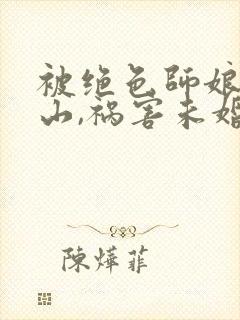 被绝色师娘
山,祸害未婚
陳燁菲